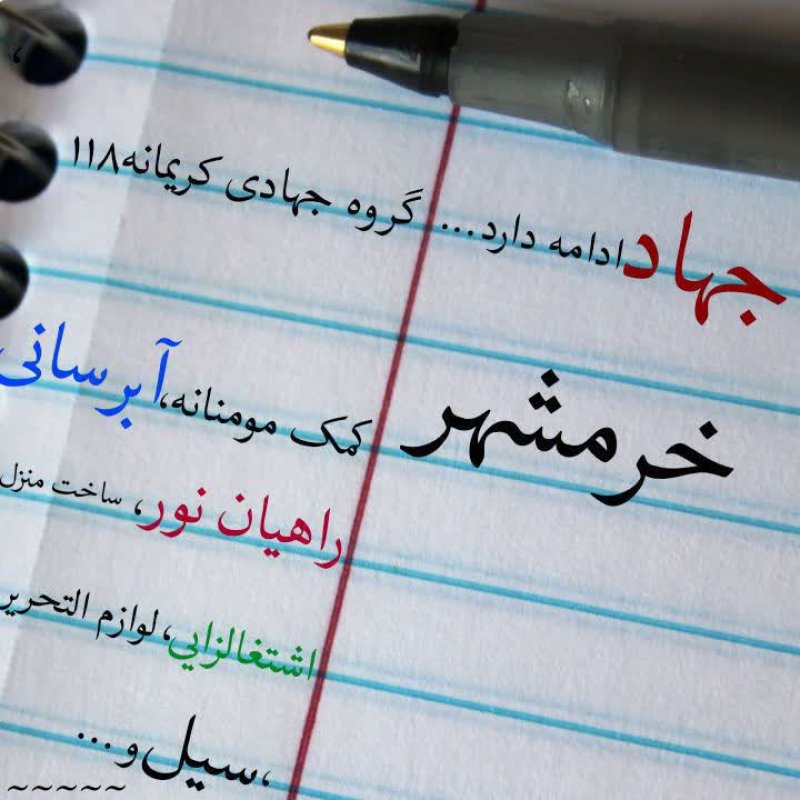 جهاد ادامه دارد... گروه جهادی کریمانه۱۱۸
خرمشهر
کمک مومنانه،آبرسانی
راهیان نور، ساخت منزل
اشتغالزایی،لوازم التحریر
،سیل و ...
~~~~~